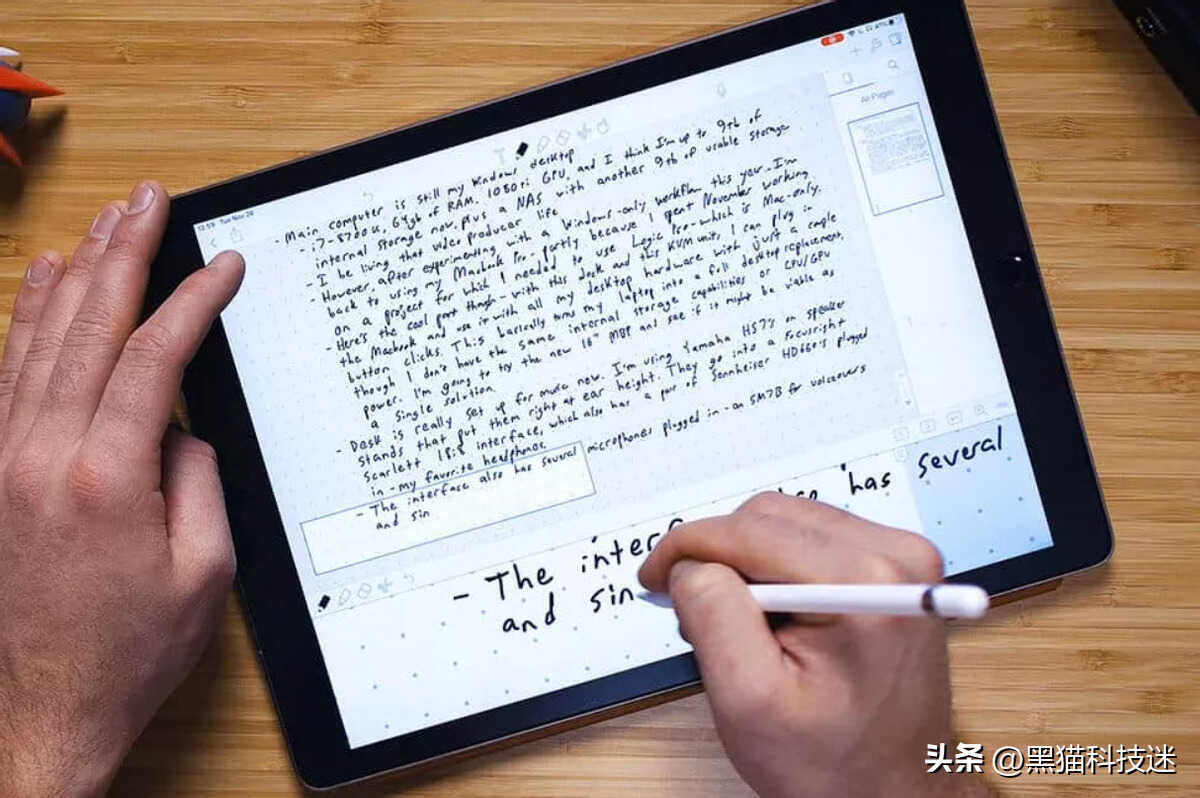 12:59 Tue Nov 26
All Pages
- Main computer is still my Windows desktop
i7-8700k, 64gb of RAM, 1080ti GPU, and I think I'm up to 9tb of
internal storage now, plus a NAS with another 9tb of usable storage
- I be living that video producer life
- However, after experimenting with a Windows-only workflow this year - I'm
back to using my Macbook Pro - partly because I spent November working
on a project for which I needed to use Logic Pro - which is Mac-only.
- Here's the cool part though - with this dock and this KVM unit, I can plug in
the Macbook and use it with all my desktop hardware with just a couple
button clicks. This basically turns my laptop into a full desktop replacement,
though I don't have the same internal storage capabilities or CPU/GPU
power. I'm going to try the new 16" MBP and see if it might be viable as
a single solution.
- Desk is really set up for music now. I'm using Yamaha HS7's on speaker
stands that put them right at ear height. They go into a Focusright
Scarlett 18i8 interface, which also has a pair of Sennheiser HD660's plugged
in - my favorite headphones.
- The interface also has several microphones plugged in - an SM7B for voiceovers
and sin
- The interf has several
and sin
头条 @黑猫科技迷